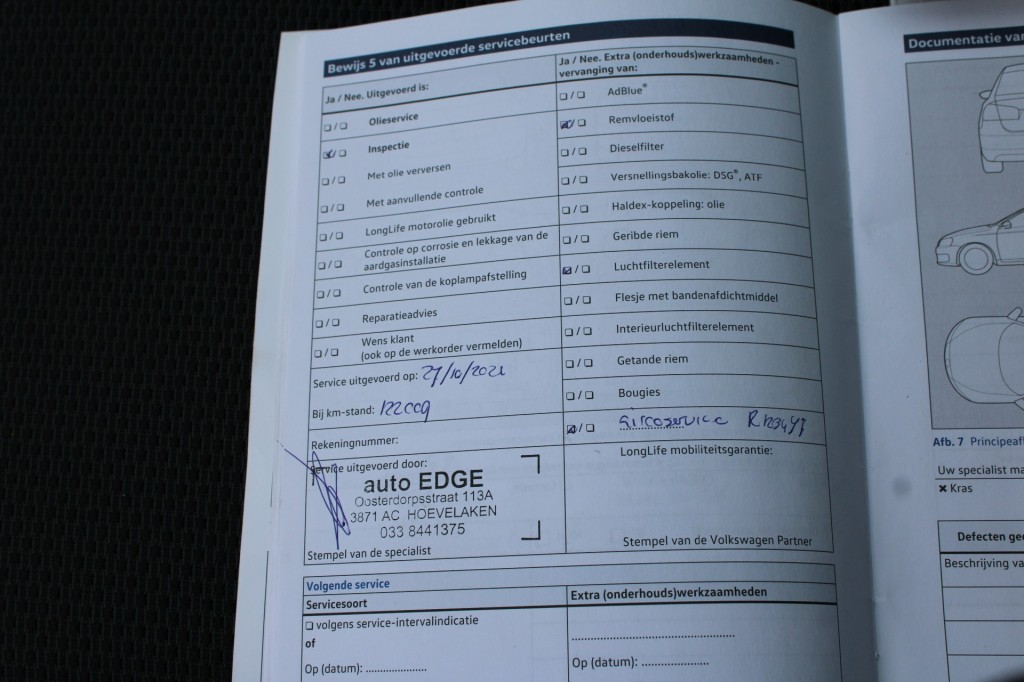 Bewijs 5 van uitgevoerde servicebeurten
Ja / Nee. Uitgevoerd is:
❑ / ❑ Olieservice
☑ / ❑ Inspectie
❑ / ❑ Met olie verversen
❑ / ❑ Met aanvullende controle
❑ / ❑ LongLife motorolie gebruikt
❑ / ❑ Controle op corrosie en lekkage van de
aardgasinstallatie
❑ / ❑ Controle van de koplampafstelling
❑ / ❑ Reparatieadvies
❑ / ❑ Wens klant
(ook op de werkorder vermelden)
Service uitgevoerd op: 27/10/2021
Bij km-stand: 122009
Rekeningnummer:
Service uitgevoerd door:
auto EDGE
Oosterdorpsstraat 113A
3871 AC HOEVELAKEN
033 8441375
Stempel van de specialist
Ja / Nee. Extra (onderhouds)werkzaamheden -
vervanging van:
❑ / ❑ AdBlue®
☑ / ❑ Remvloeistof
❑ / ❑ Dieselfilter
❑ / ❑ Versnellingsbakolie: DSG®, ATF
❑ / ❑ Haldex-koppeling: olie
❑ / ❑ Geribde riem
☑ / ❑ Luchtfilterelement
❑ / ❑ Flesje met bandenafdichtmiddel
❑ / ❑ Interieurluchtfilterelement
❑ / ❑ Getande riem
❑ / ❑ Bougies
☑ / ❑ Aircoservice R1234yf
LongLife mobiliteitsgarantie:
Stempel van de Volkswagen Partner
Volgende service
Servicesoort
❑ volgens service-intervalindicatie
of
Op (datum): ....................
Extra (onderhouds)werkzaamheden
Op (datum): ....................
Documentatie van
Afb. 7 Principeaf
Uw specialist ma
✖ Kras
Defecten gee
Beschrijving va